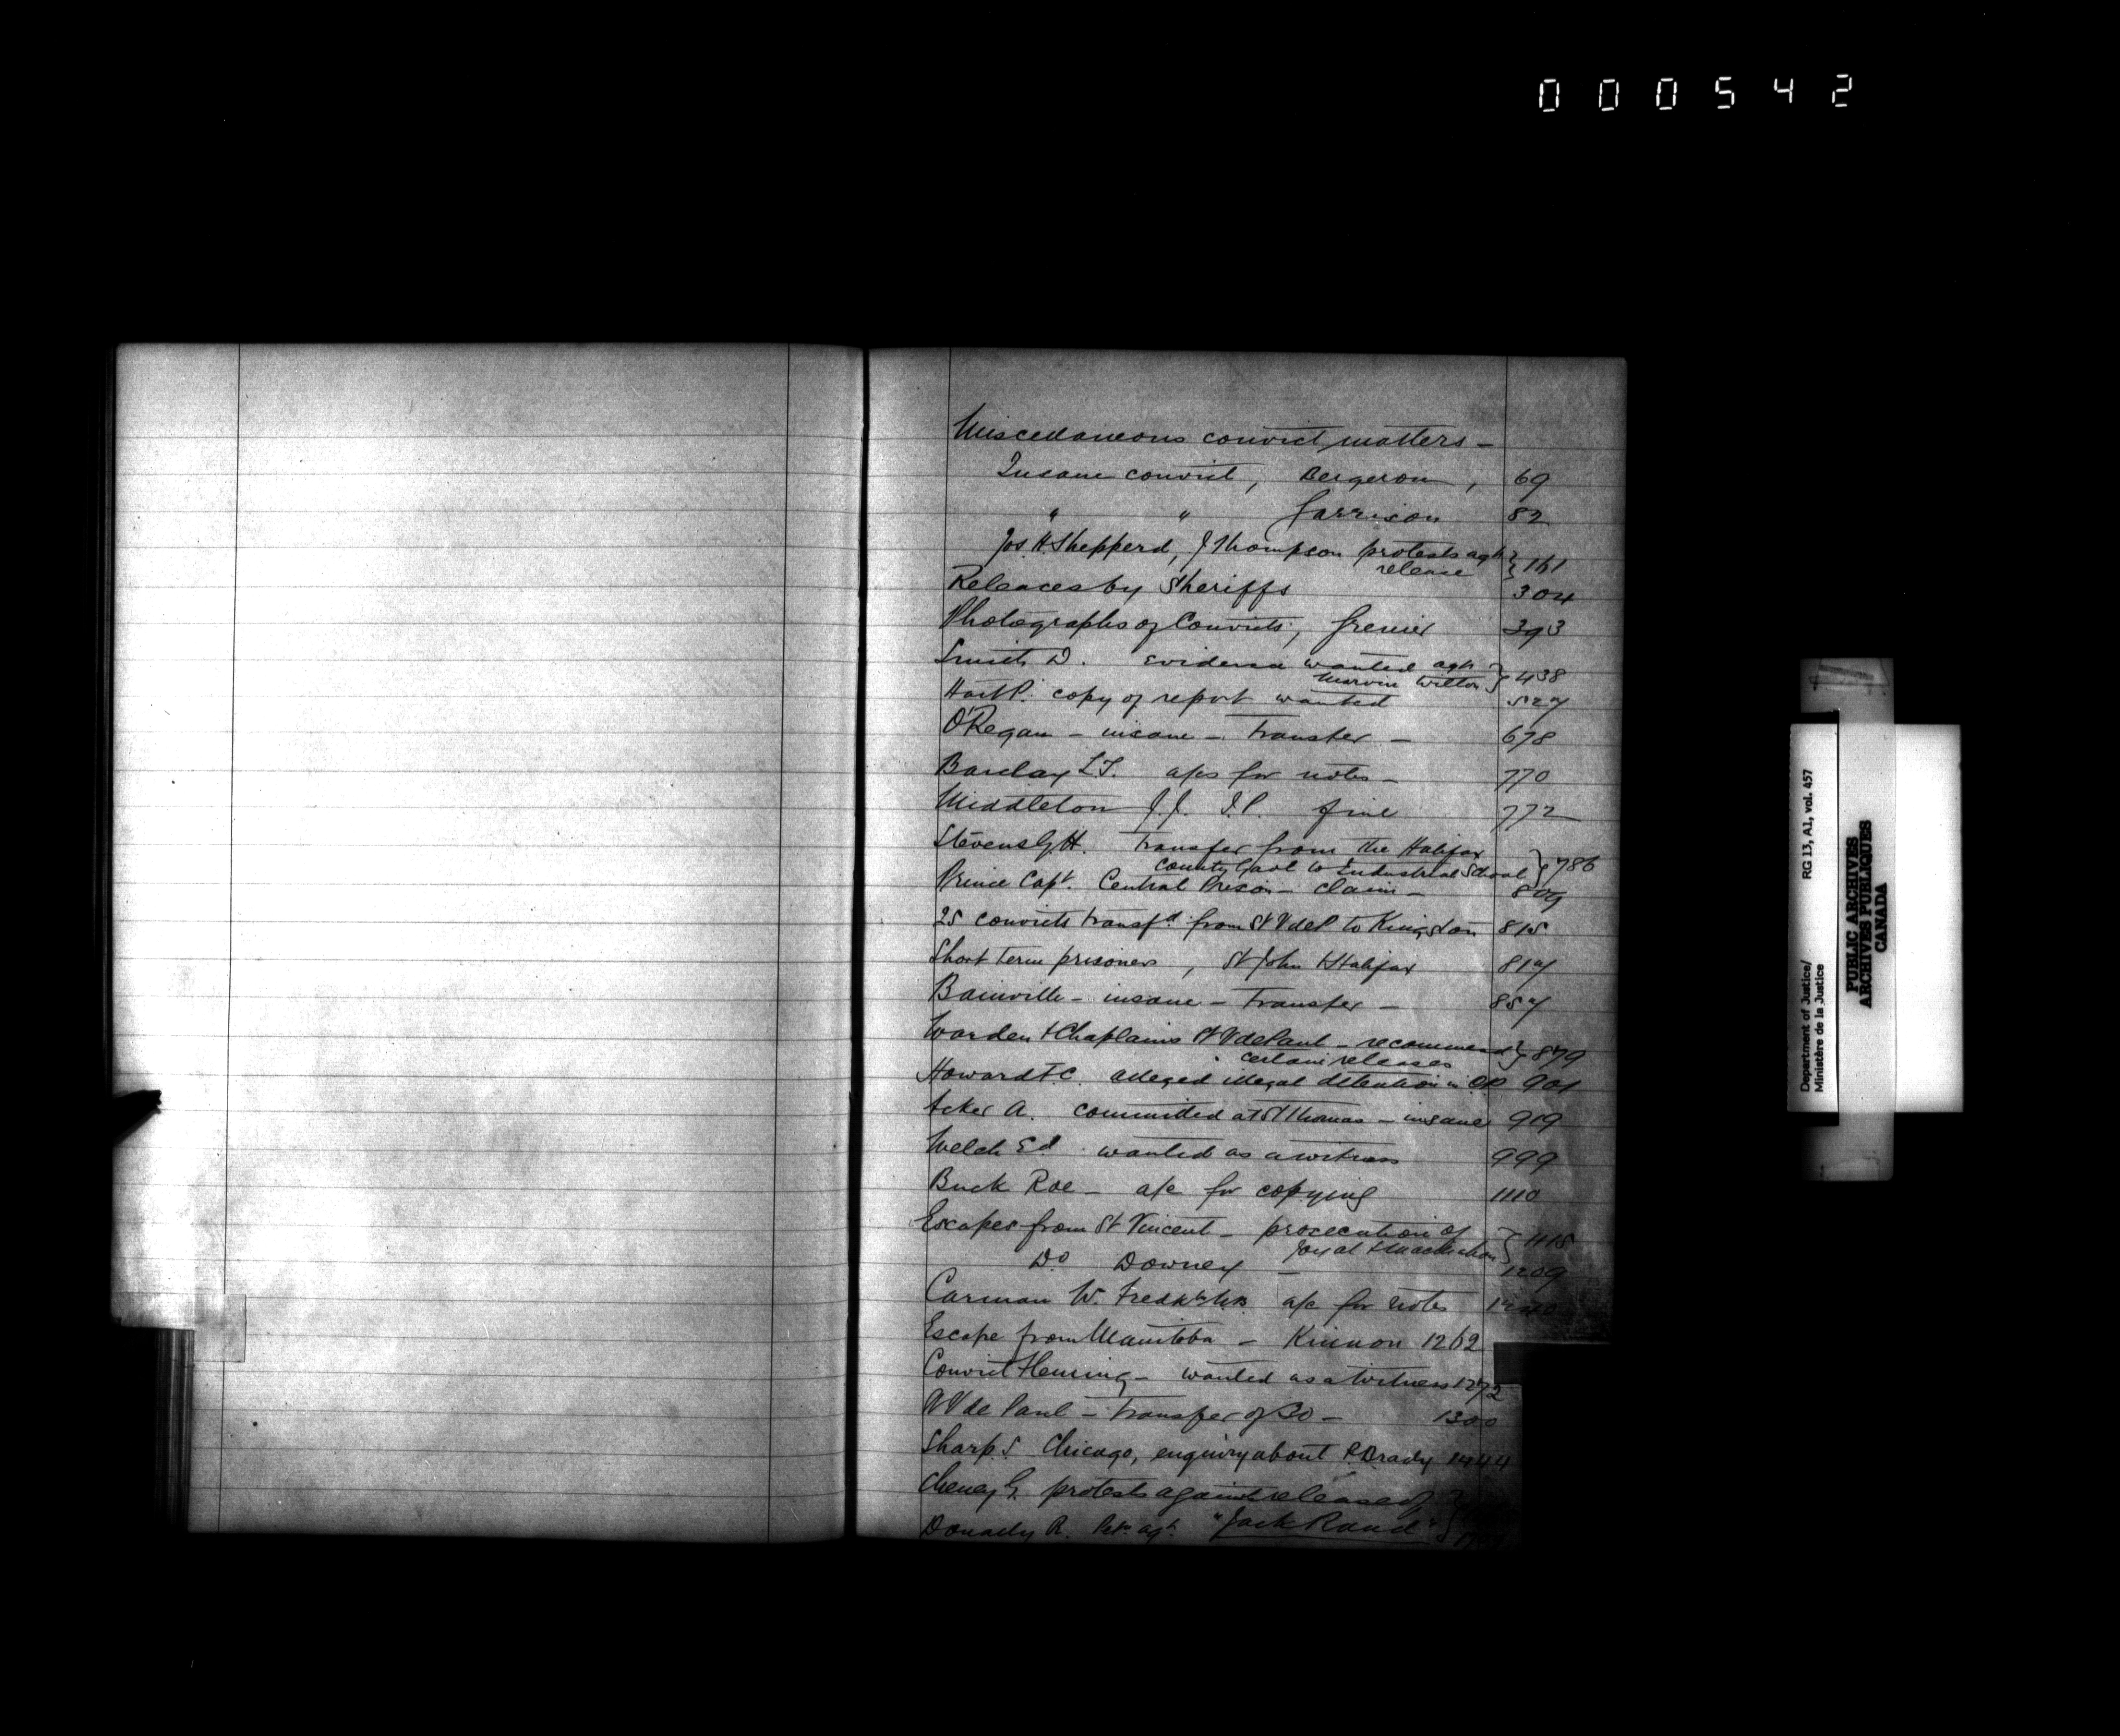 000542
Miscellaneous convict matters –
Insane convict, Bergeron, 69
" " Garrison 82
Jos. H. Shepperd, J Thompson protests agst } 161
release
Releases by Sheriffs 304
Photographs of Convicts, Grenier 393
Smith D. Evidence wanted agst } 438
Marvin Wilton
Hart P. copy of report wanted 527
O'Regan – insane – Transfer – 678
Barclay L.T. a/cs for notes – 770
Middleton J.J. J.P. fine 772
Stevens G.H. Transfer from the Halifax } 786
County Gaol to Industrial School
Prince Capt. Central Prison – claim – 809
25 convicts transfd. from St V de P to Kingston 815
Short term prisoners, St John & Halifax 817
Bainville – insane – Transfer – 857
Warden & Chaplains St V de Paul – recommend } 879
certain releases
Howard F.C. alleged illegal detention in C.P. 901
Acker A. committed at St Thomas – insane 919
Welch Ed. wanted as a witness 999
Buck Roe – a/c for copying 1110
Escapes from St Vincent – prosecution of } 1115
Do Downey – 1209
Carman W. a/c for notes
Escape from Manitoba – Kinnon 1262
Convict Fleming – wanted as a witness 1272
V de Paul – Transfer of 30 – 1300
Sharp S Chicago, enquiry about P. Brady 1444
Cheney G. protests against release of }
Donaely R. agt. "Jack Rand"
Department of Justice/
Ministère de la Justice
RG 13, A1, vol. 457
PUBLIC ARCHIVES
ARCHIVES PUBLIQUES
CANADA